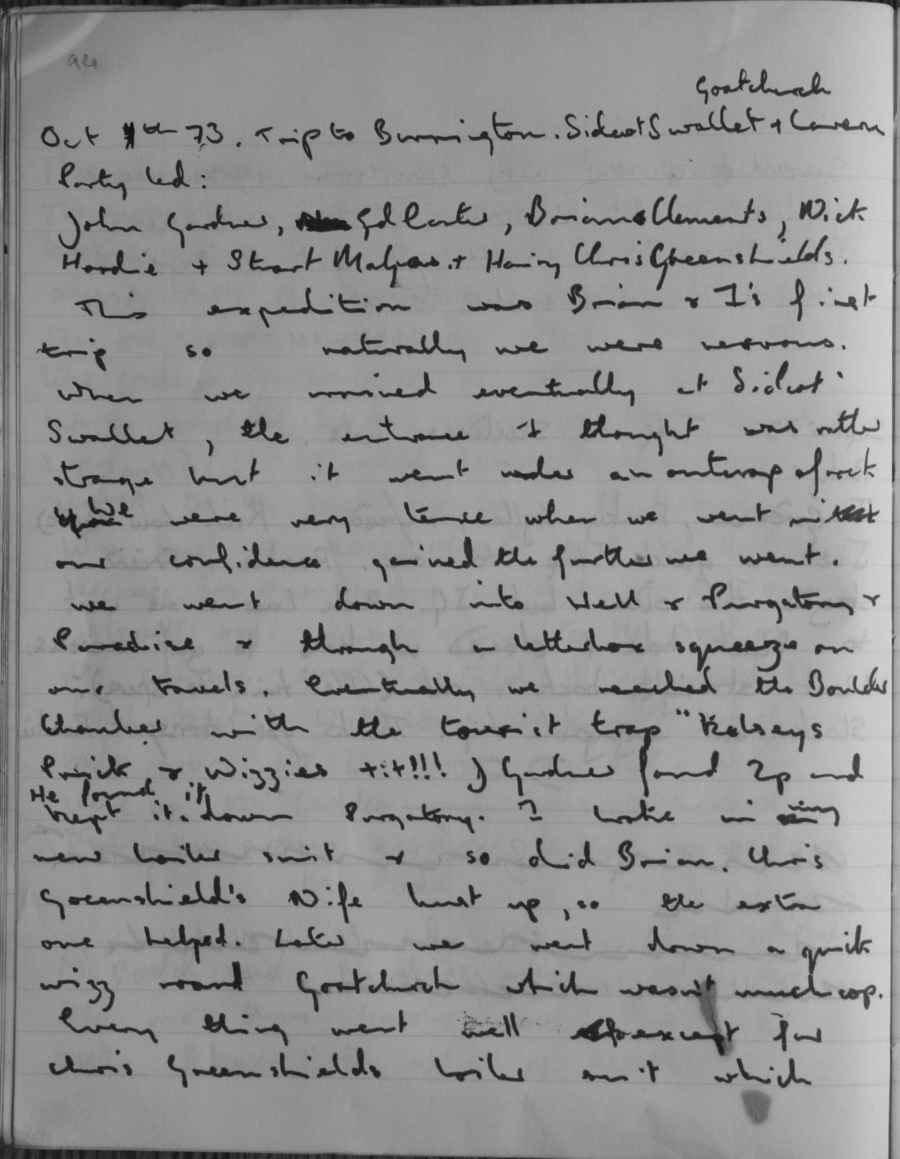 94
Goatchurch
Oct 7th 73. Trip to Burrington. Sidcot Swallet + Cavern
Party led:
John Gardner, Ed Carter, Brian Clements, Nick
Hardie + Stuart Malpas. + Hairy Chris Greenshields.
This expedition was Brian & I's first
trip so naturally we were nervous.
When we arrived eventually at Sidcot
Swallet, the entrance I thought was rather
strange but it went under an outcrop of rock
We were very tence when we went in
our confidence gained the further we went.
We went down into Hell & Purgatory &
Paradise & through a letterbox squeeze on
our travels. Eventually we reached the Boulder
Chamber with the tourist trap "Kelseys
Prick & Wizzies tit!!! J Gardner found 2p and
He found it
kept it. down Purgatory. I broke in my
new boiler suit & so did Brian. Chris
Greenshield's Nife bust up, so the extra
one helped. Later we went down a quick
wizz round Goatchurch which wasn't much cop.
Every thing went well except for
Chris Greenshields boiler suit which